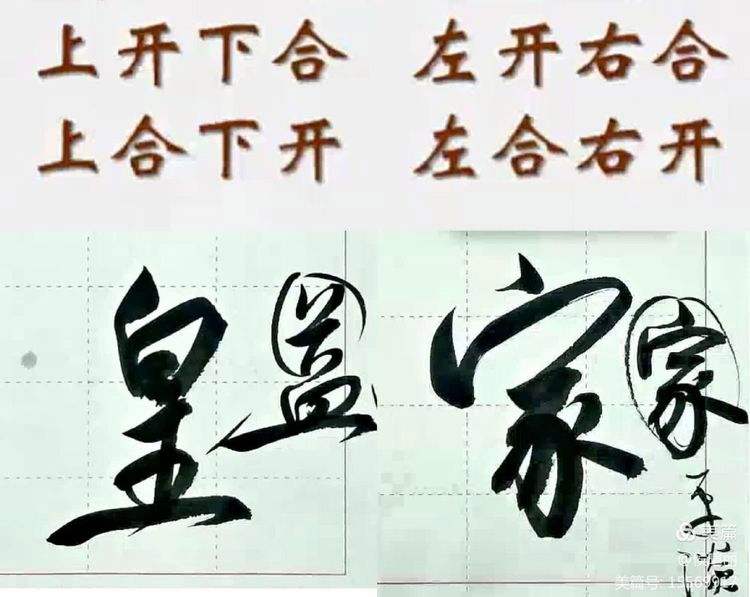 上开下合 左开右合
上合下开 左合右开
皇 益 家 家
美篇
美篇号